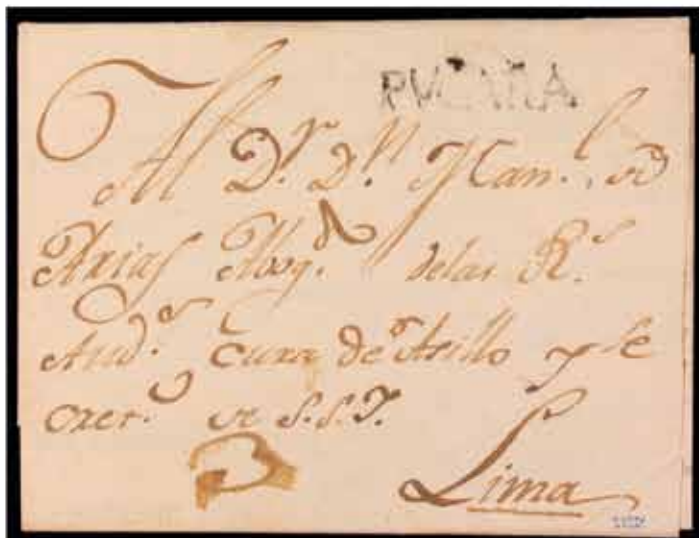 PUCARA.
Al D.r D.n Man.l de
Arias Abog.do de las R.s
Aud.s Cura de Asillo y se
exer.
Lima